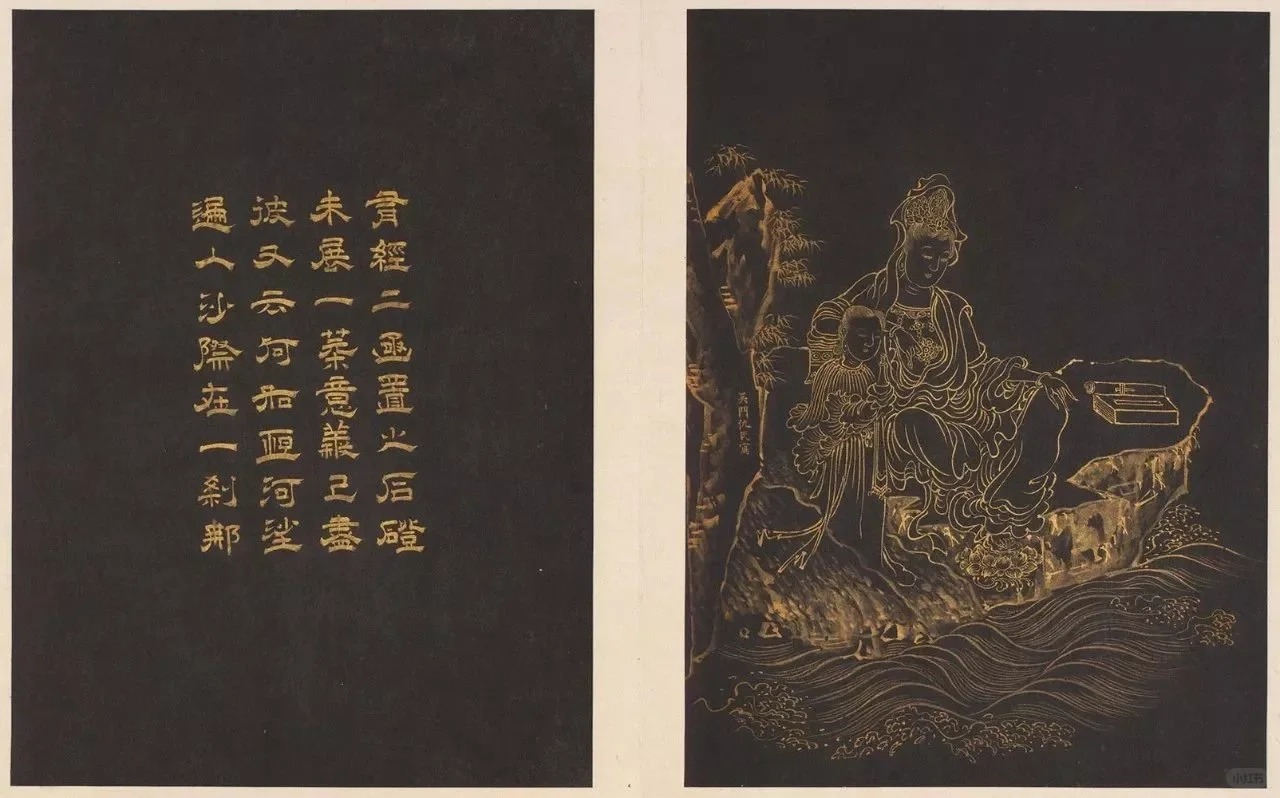 有經二函置之石磴
未展一葉意義已盡
彼又云何如恒河沙
遍入沙際在一刹那
吳門仇氏寫
小红书